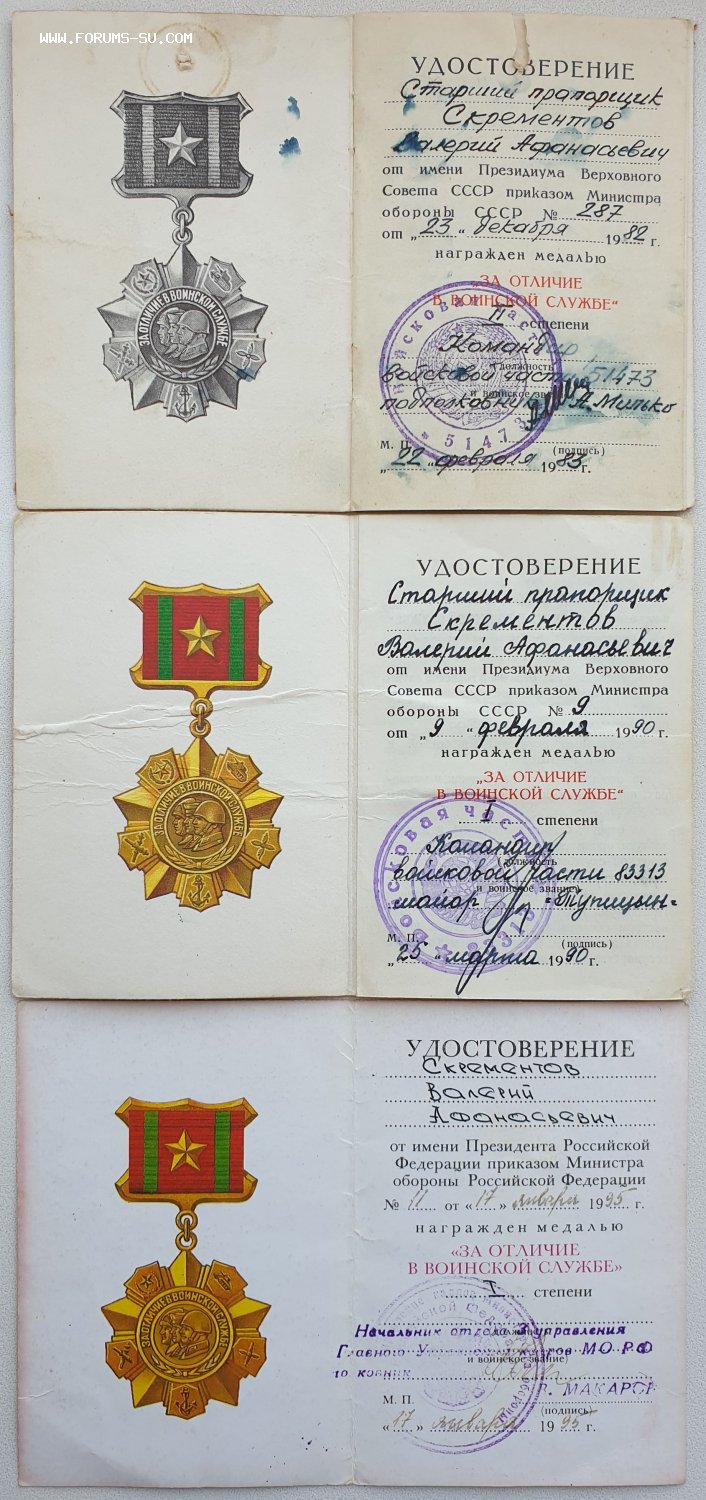 www.forums-su.com
ЗА ОТЛИЧИЕ В ВОИНСКОЙ СЛУЖБЕ
УДОСТОВЕРЕНИЕ
Старший прапорщик
Скрементов
Валерий Афанасьевич
от имени Президиума Верховного
Совета СССР приказом Министра
обороны СССР № 287
от „23“ декабря 1982 г.
награжден медалью
„ЗА ОТЛИЧИЕ
В ВОИНСКОЙ СЛУЖБЕ“
II степени
Командир
(должность
войсковой части 51473
и воинское звание)
подполковник А. Минко
М. П. (подпись)
„22“ февраля 1983 г.
Войсковая часть
* 51473
ЗА ОТЛИЧИЕ В ВОИНСКОЙ СЛУЖБЕ
УДОСТОВЕРЕНИЕ
Старший прапорщик
Скрементов
Валерий Афанасьевич
от имени Президиума Верховного
Совета СССР приказом Министра
обороны СССР № 9
от „9“ февраля 1990 г.
награжден медалью
„ЗА ОТЛИЧИЕ
В ВОИНСКОЙ СЛУЖБЕ“
I степени
Командир
(должность
войсковой части 83313
и воинское звание)
майор Тупицын
М. П. (подпись)
„25“ марта 1990 г.
Войсковая часть
83313
ЗА ОТЛИЧИЕ В ВОИНСКОЙ СЛУЖБЕ
УДОСТОВЕРЕНИЕ
Скрементов
Валерий
Афанасьевич
от имени Президента Российской
Федерации приказом Министра
обороны Российской Федерации
№ 11 от «17» января 1995 г.
награжден медалью
«ЗА ОТЛИЧИЕ
В ВОИНСКОЙ СЛУЖБЕ»
I степени
Начальник отдела 3 управления
Главного кадров МО РФ
и воинское звание)
МАКАРОВ
М. П. (подпись)
«17» января 1995 г.